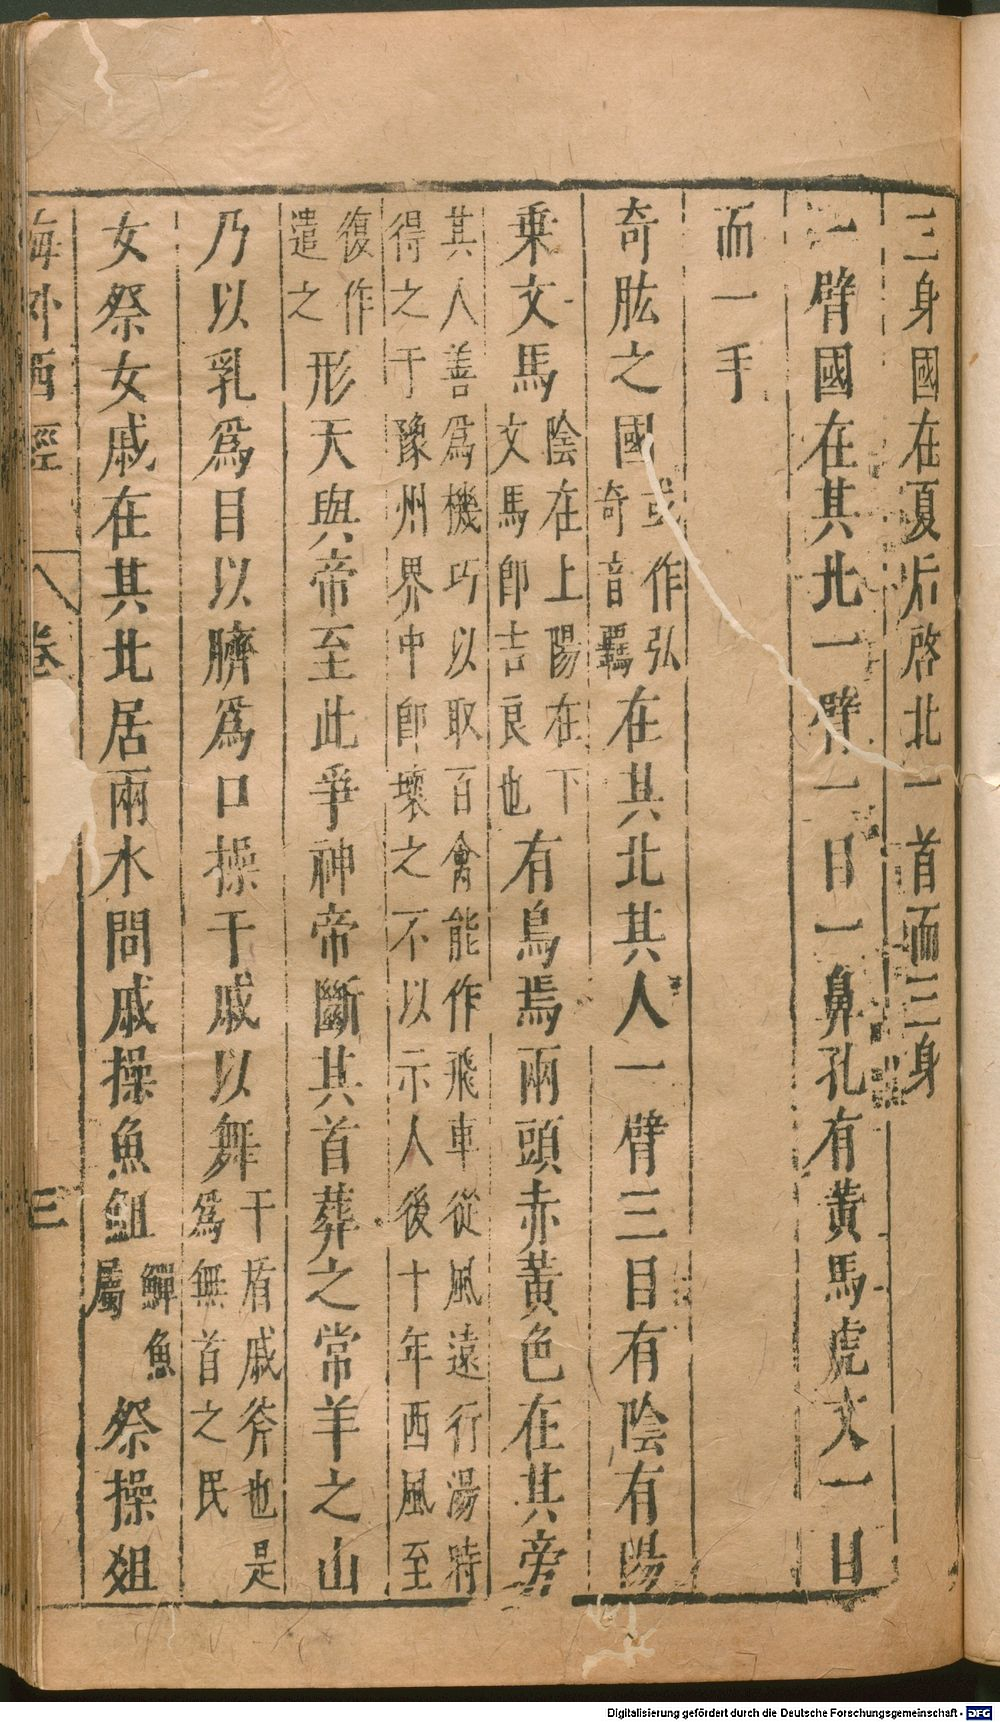 三身國在夏后啓北一首而三身
一臂國在其北一臂一目一鼻孔有黃馬虎文一目
而一手
奇肱之國或作弘奇音羈在其北其人一臂三目有陰有陽
乗文馬陰在上陽在下文馬卽吉良也有鳥焉兩頭赤黃色在其旁
其人善爲機巧以取百禽能作飛車從風遠行湯時
得之于豫州界中卽壞之不以示人後十年西風至
復作遣之形天與帝至此爭神帝斷其首葬之常羊之山
乃以乳爲目以臍爲口操干戚以舞干盾戚斧也是爲無首之民
女祭女戚在其北居兩水間戚操魚䱉鱓魚屬祭操俎
海外西經 八卷 三
Digitalisierung gefördert durch die Deutsche Forschungsgemeinschaft - DFG